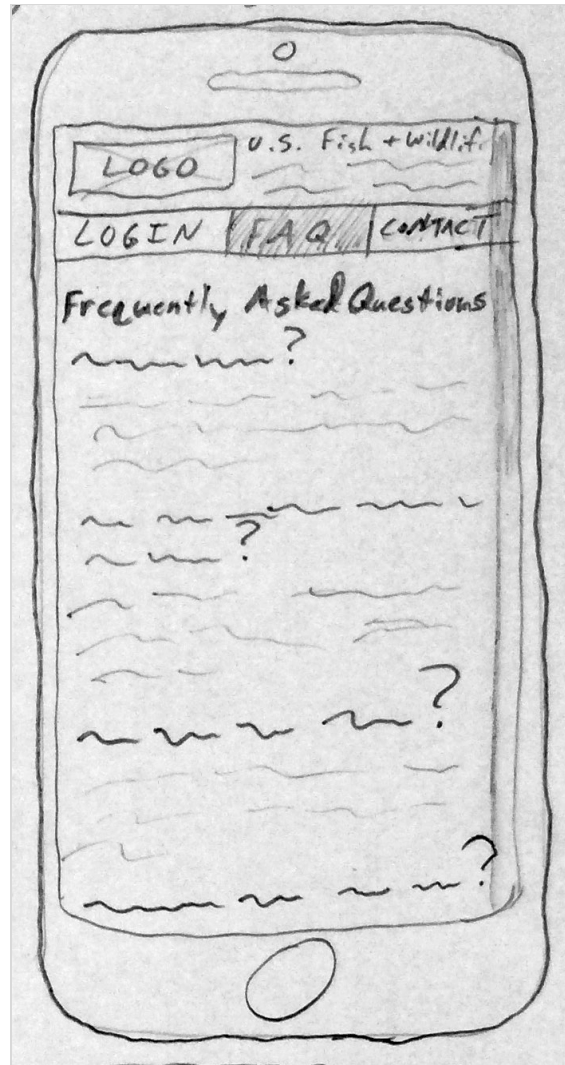 LOGO
U.S. Fish + Wildlif
LOGIN FAQ CONTACT
Frequently Asked Questions
?
?
?
?